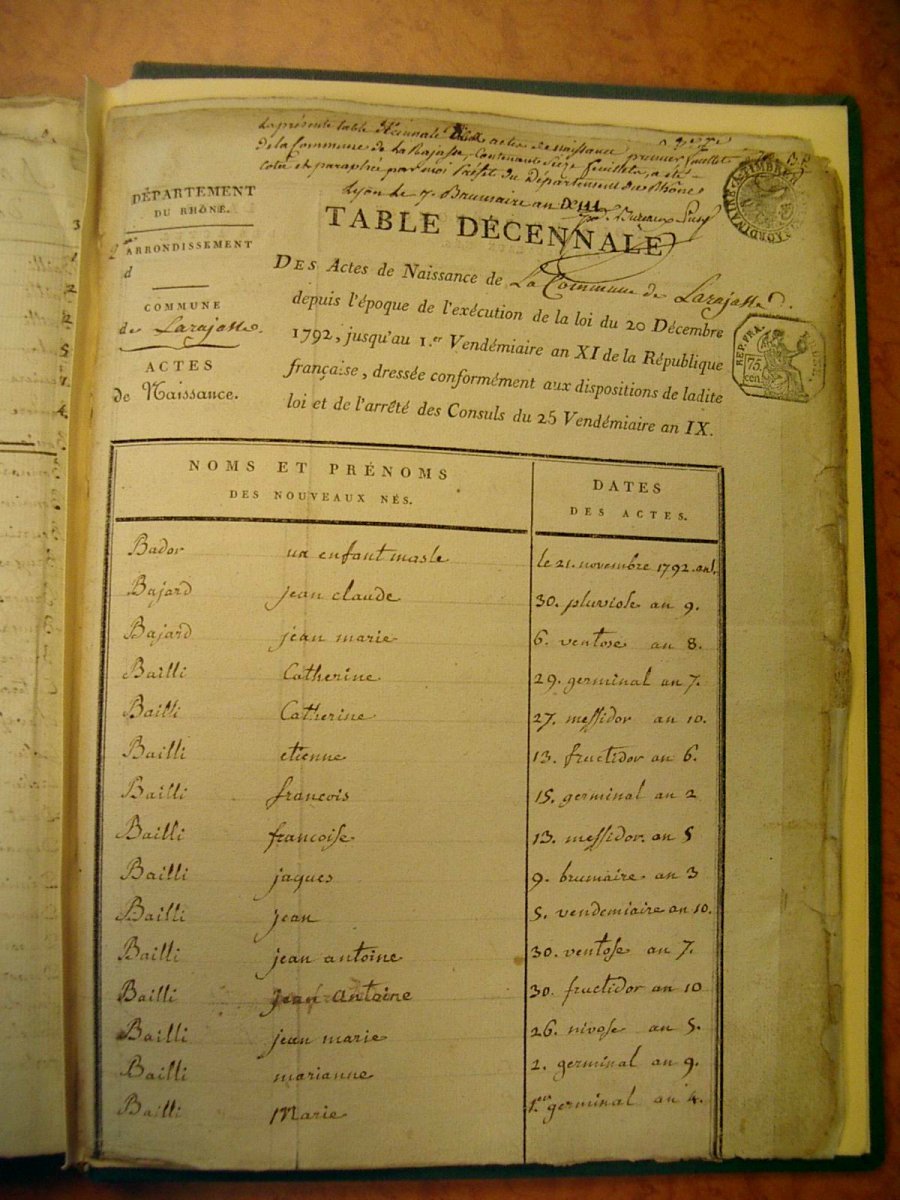 La présente table décennale des actes de naissance premier feuillet
de la Commune de La Rajasse, Contenante Seize feuillets, a été
coté et paraphée par moi Préfet du Département du Rhône
Lyon le 7 Brumaire an
DÉPARTEMENT
DU RHÔNE.
ARRONDISSEMENT
d
COMMUNE
de Larajasse.
ACTES
de Naissance.
TABLE DÉCENNALE
DES Actes de Naissance de La Commune de Larajasse
depuis l'époque de l'exécution de la loi du 20 Décembre
1792, jusqu'au 1.er Vendémiaire an XI de la République
française, dressée conformément aux dispositions de ladite
loi et de l'arrêté des Consuls du 25 Vendémiaire an IX.
REP. FRA.
75
cen.
NOMS ET PRÉNOMS
DES NOUVEAUX NÉS.
DATES
DES ACTES.
Bador un enfant masle le 21. novembre 1792. an 1.
Bajard jean claude 30. pluviose an 9.
Bajard jean marie 6. ventose an 8.
Bailli Catherine 29. germinal an 7.
Bailli Catherine 27. messidor an 10.
Bailli etienne 13. fructidor an 6.
Bailli francois 15. germinal an 2
Bailli francoise 13. messidor. an 5
Bailli jaques 9. brumaire an 3
Bailli jean 5. vendemiaire an 10.
Bailli jean antoine 30. ventose an 7.
Bailli jean antoine 30. fructidor an 10
Bailli jean marie 26. nivose an 5.
Bailli marianne 2. germinal an 9.
Bailli Marie 1.er germinal an 4.